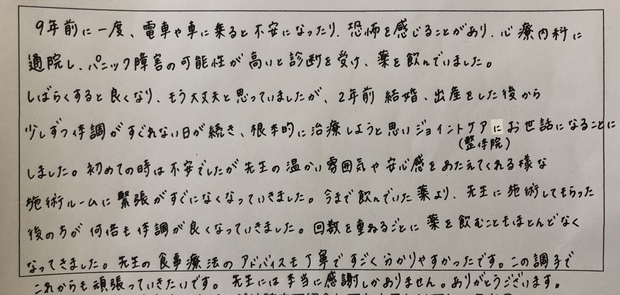 9年前に一度、電車や車に乗ると不安になったり、恐怖を感じることがあり、心療内科に
通院し、パニック障害の可能性が高いと診断を受け、薬を飲んでいました。
しばらくすると良くなり、もう大丈夫と思っていましたが、2年前 結婚、出産をした後から
少しずつ体調がすぐれない日が続き、根本的に治療しようと思いジョイントケアにお世話になることに
(整体院)
しました。初めての時は不安でしたが先生の温かい雰囲気や安心感をあたえてくれる様な
施術ルームに緊張がすぐになくなっていきました。今まで飲んでいた薬より、先生に施術してもらった
後の方が何倍も体調が良くなっていきました。回数を重ねるごとに薬を飲むこともほとんどなく
なってきました。先生の食事療法のアドバイスも丁寧ですごく分かりやすかったです。この調子で
これからも頑張っていきたいです。先生には本当に感謝しかありません。ありがとうございます。